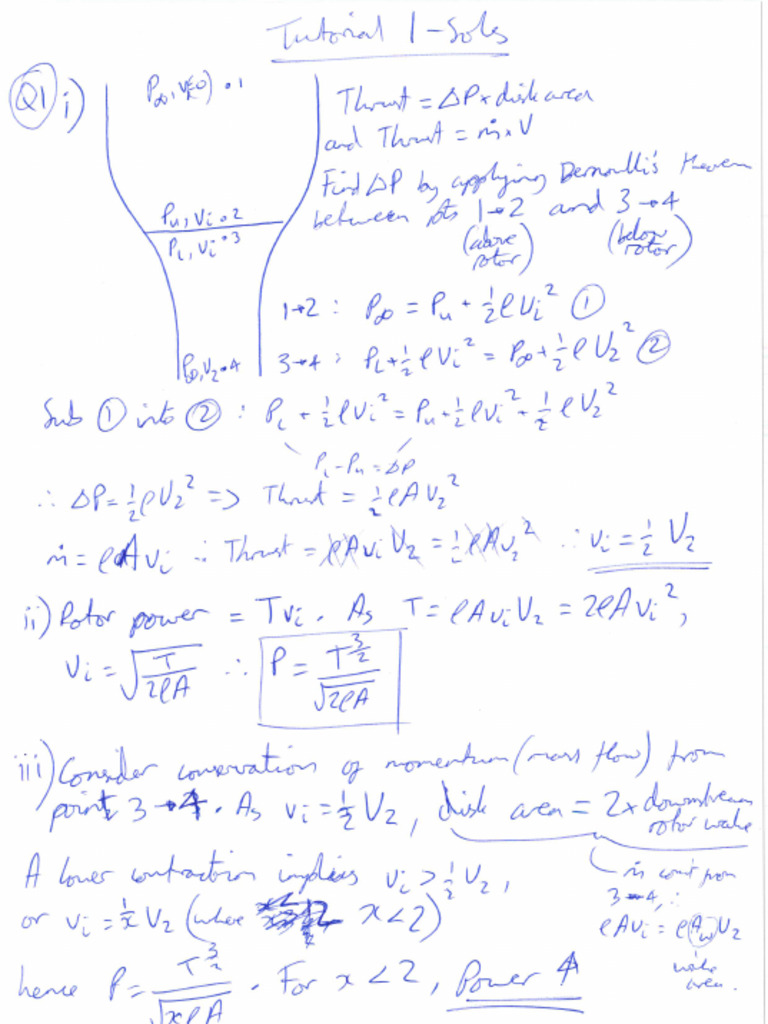 Tutorial 1 - Sols
Q1 i)
P∞, V(=0) • 1
Thrust = ΔP x disk area
and Thrust = ṁ x V
Find ΔP by applying Bernoulli's theorem
between pts 1→2 and 3→4
(above rotor) (below rotor)
Pu, Vi • 2
PL, Vi • 3
P∞, V2 • 4
1→2 : P∞ = Pu + ½ρVi² ①
3→4 : PL + ½ρVi² = P∞ + ½ρV2² ②
Sub ① into ② : PL + ½ρVi² = Pu + ½ρvi² + ½ρV2²
PL - Pu = ΔP
∴ ΔP = ½ρV2² => Thrust = ½ρAV2²
ṁ = ρAvi ∴ Thrust = ρAviV2 = ½ρAV2² ∴ vi = ½ V2
ii) Rotor power = Tvi . As T = ρAviV2 = 2ρAvi²,
vi = √(T/2ρA) ∴ P = T^(3/2)/√(2ρA)
iii) Consider conservation of momentum (mass flow) from
points 3→4. As vi = ½V2, disk area = 2 x downstream rotor wake
A lower contraction implies vi > ½V2,
ṁ const from
3→4, ∴
or vi = 1/x V2 (where x < 2)
ρAvi = ρAwV2
wake area.
hence P = T^(3/2)/√(xρA) . For x < 2, Power ↑